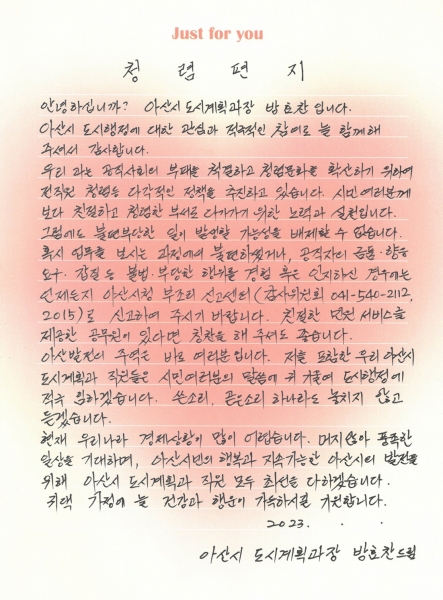 Just for you
청 렴 편 지
안녕하십니까? 아산시 도시계획과장 방효찬 입니다.
아산시 도시행정에 대한 관심과 적극적인 참여로 늘 함께해
주셔서 감사합니다.
우리 과는 공직사회의 부패를 척결하고 청렴문화를 확산하기 위하여
전직원 청렴도 다각적인 정책을 추진하고 있습니다. 시민 여러분께
보다 친절하고 청렴한 부서로 다가가기 위한 노력과 실천입니다.
그럼에도 불편부당한 일이 발생할 가능성을 배제할 수 없습니다.
혹시 업무를 보시는 과정에서 불편하셨거나, 공직자의 금품·향응
요구, 갑질 등 불법·부당한 행위를 경험 혹은 인지하신 경우에는
언제든지 아산시청 부조리 신고센터(감사위원회 041-540-2112,
2015)로 신고하여 주시기 바랍니다. 친절한 민원 서비스를
제공한 공무원이 있다면 칭찬을 해 주셔도 좋습니다.
아산발전의 주역은 바로 여러분입니다. 저를 포함한 우리 아산시
도시계획과 직원들은 시민여러분의 말씀에 귀 기울여 도시행정에
적극 임하겠습니다. 쓴소리, 곧은소리 하나라도 놓치지 않고
듣겠습니다.
현재 우리나라 경제상황이 많이 어렵습니다. 머지않아 풍족한
일상을 기대하며, 아산시민의 행복과 지속가능한 아산시의 발전을
위해 아산시 도시계획과 직원 모두 최선을 다하겠습니다.
귀댁 가정에 늘 건강과 행운이 가득하시길 기원합니다.
2023. . .
아산시 도시계획과장 방효찬드림